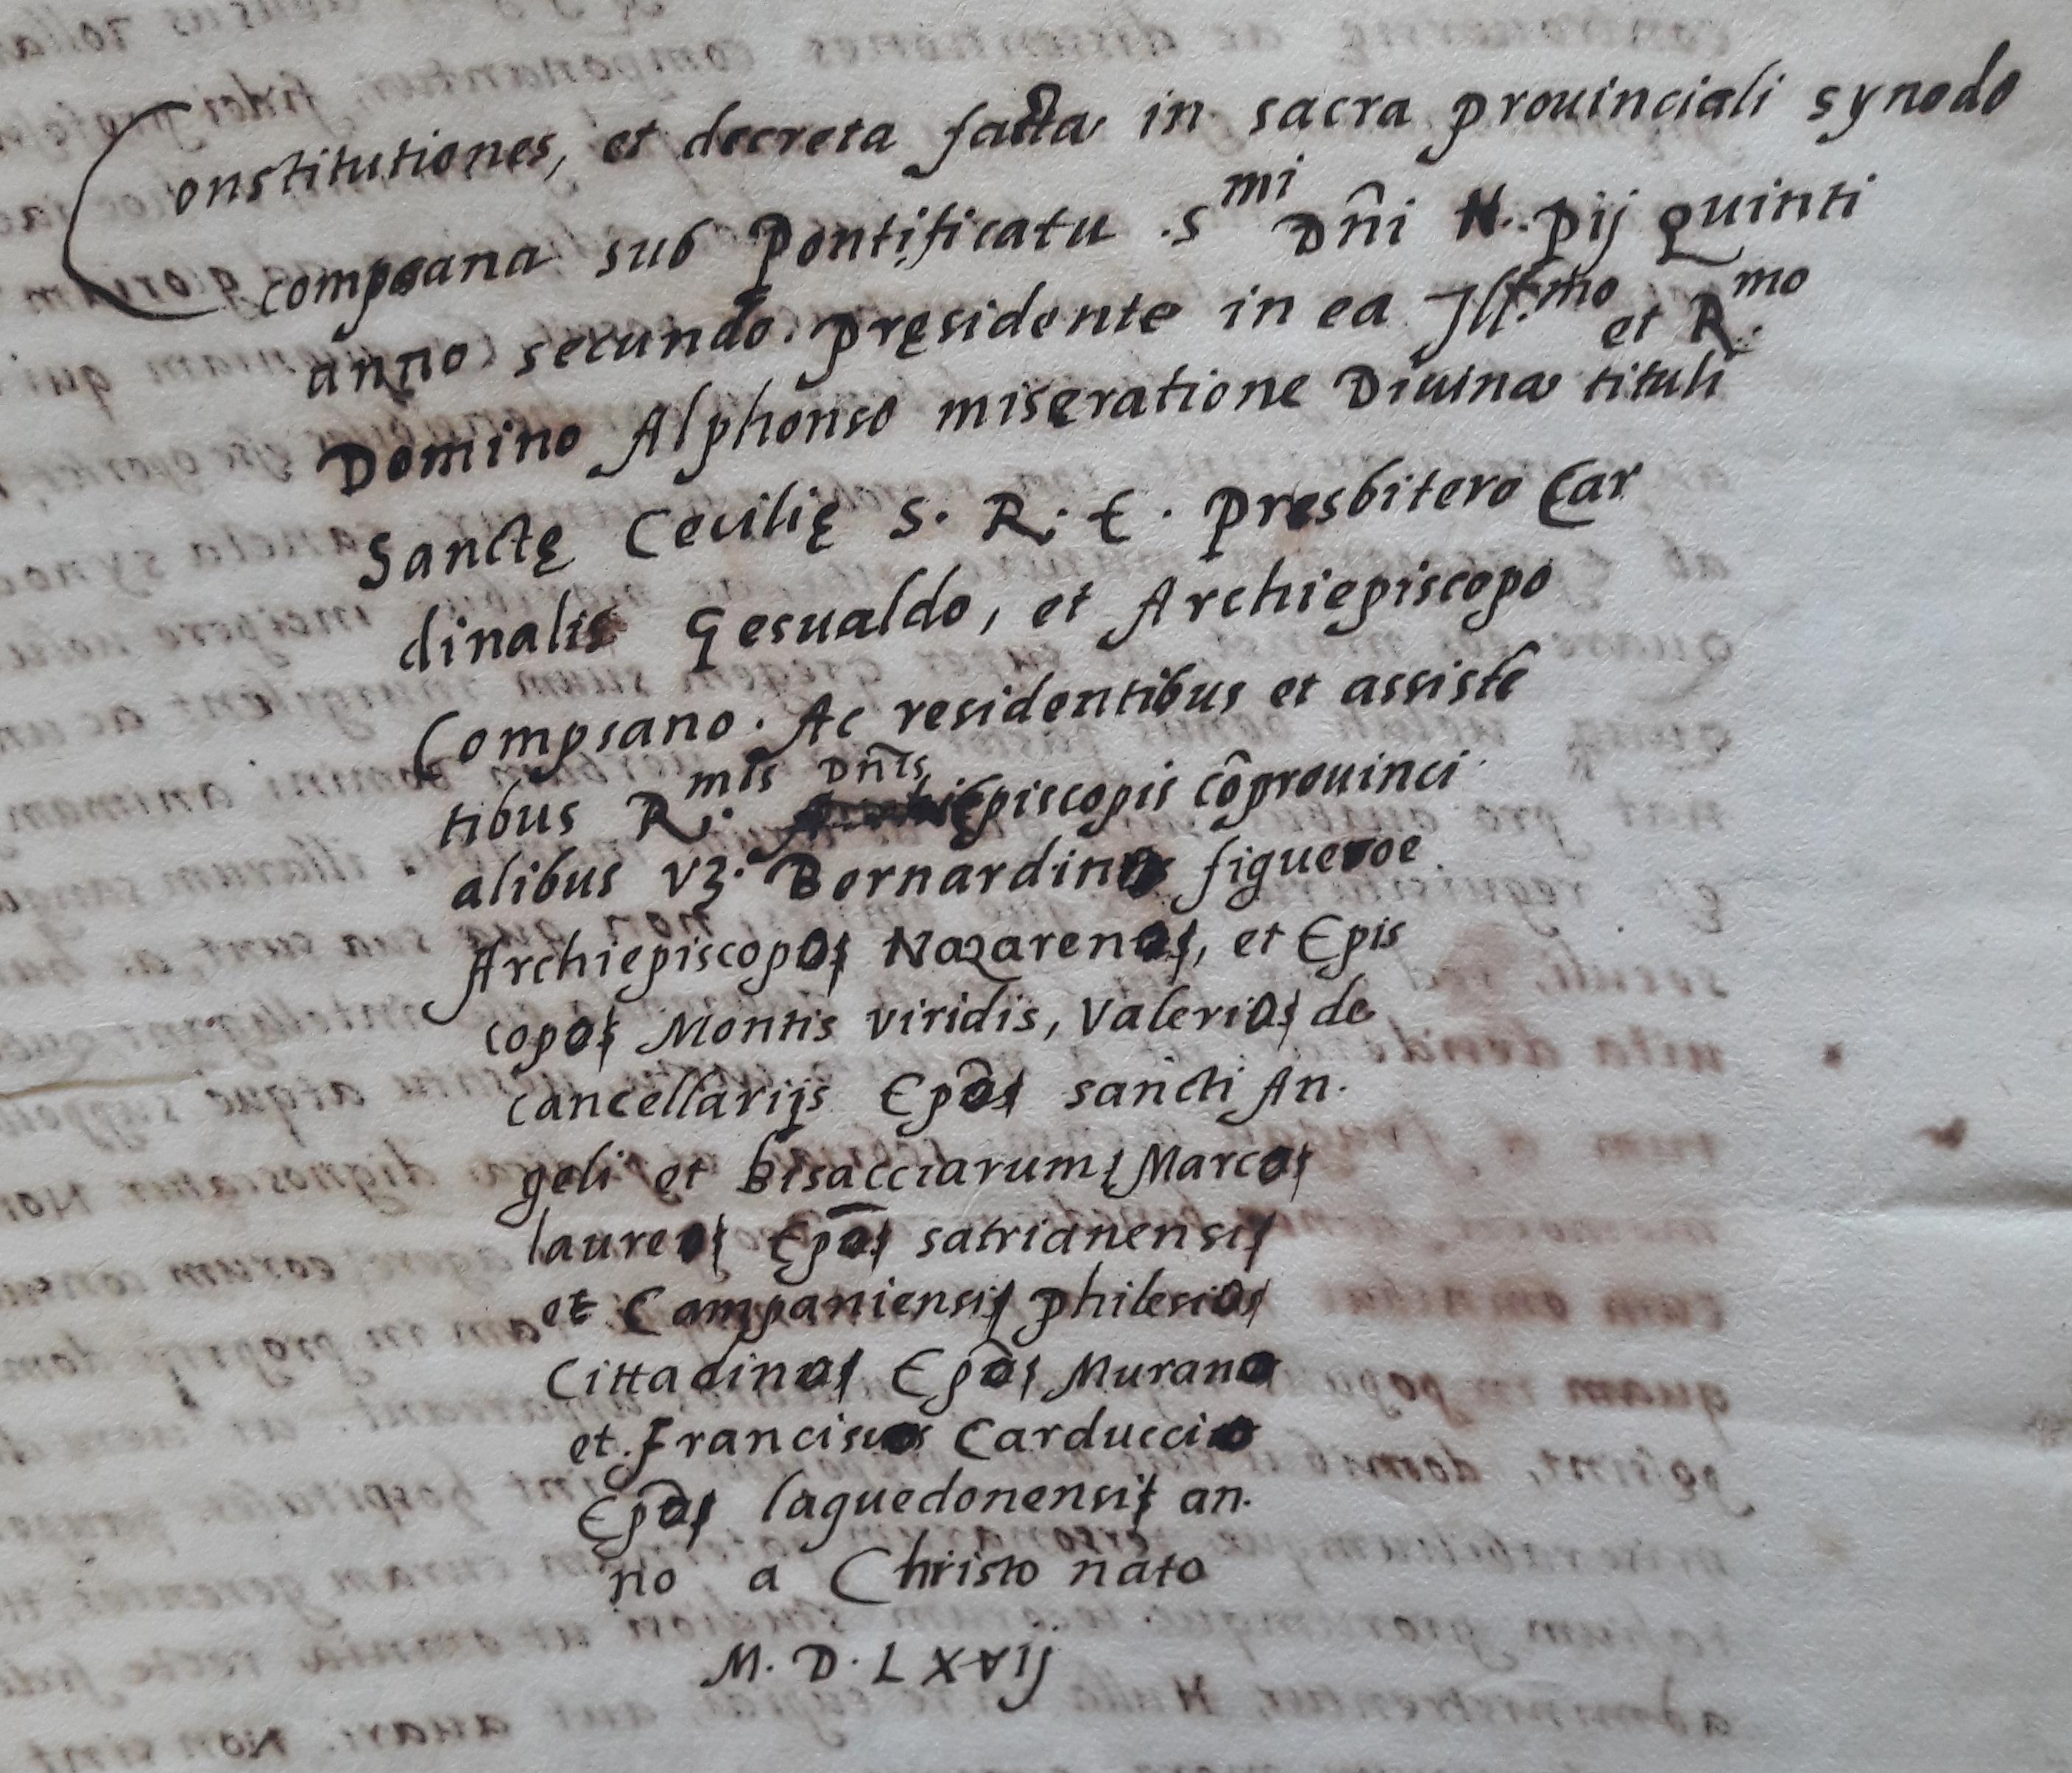 Constitutiones, et decreta facta in sacra prouinciali synodo
compsana sub Pontificatu .S^mi Dñi N. pij quinti
anno secundo. pręsidente in ea Ill.^mo et R.^mo
Domino Alphonso miseratione Diuina tituli
Sanctę Cecilię S. R. E. Presbitero Car
dinalis Gesualdo, et Archiepiscopo
Compsano. Ac residentibus et assistẽ
tibus R.^mis Dñis episcopis cõprouinci
alibus vz. Bernardino figueroe
Archiepiscopo Nazareno, et Epis
copo Montis viridis, Valerio de
cancellarijs Epõ sancti An.
geli et bisacciarum Marco
laureo Epõ satrianensi
et Campaniensi philesio
Cittadino Epõ Murano
et Francisco Carduccio
Epõ laquedonensi an.
no a Christo nato
M. D. L X v i j